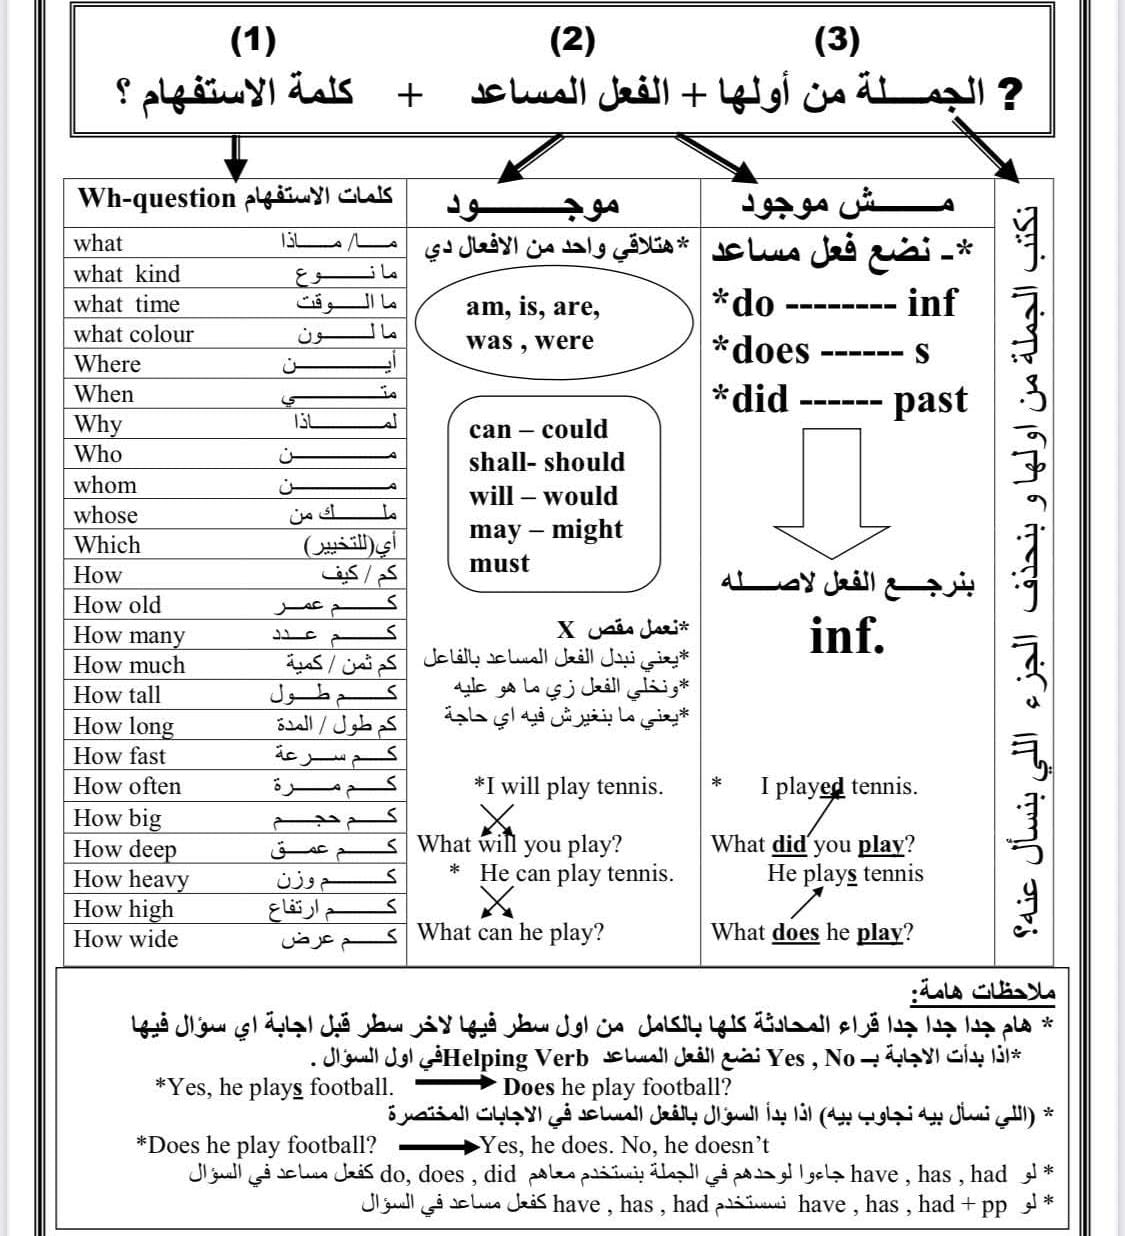 (1) (2) (3)
كلمة الاستفهام ؟ + الفعل المساعد + الجمـــلة من أولها ?
Wh-question كلمات الاستفهام
what مـــا/ مـــاذا
what kind ما نـــوع
what time ما الـــوقت
what colour ما لـــون
Where أيـــن
When متـــي
Why لمـــاذا
Who مـــن
whom مـــن
whose ملـــك من
Which أي(للتخيير)
How كم / كيف
How old كـــم عمـر
How many كـــم عـدد
How much كم ثمن / كمية
How tall كـــم طـول
How long كم طول / المدة
How fast كـــم سـرعة
How often كـــم مـــرة
How big كـــم حجـــم
How deep كـــم عمـــق
How heavy كـــم وزن
How high كـــم ارتفاع
How wide كـــم عرض
موجـــود
*هتلاقي واحد من الافعال دي
am, is, are,
was , were
can – could
shall- should
will – would
may – might
must
*نعمل مقص X
*يعني نبدل الفعل المساعد بالفاعل
*ونخلي الفعل زي ما هو عليه
*يعني ما بنغيرش فيه اي حاجة
*I will play tennis.
What will you play?
* He can play tennis.
What can he play?
مـــش موجود
*ـ نضع فعل مساعد
*do -------- inf
*does ------ s
*did ------ past
بنرجـــع الفعل لاصـــله
inf.
* I played tennis.
What did you play?
He plays tennis
What does he play?
نكتب الجملة من اولها و بنحذف الجزء اللي بنسأل عنه؟
ملاحظات هامة:
* هام جدا جدا جدا قراء المحادثة كلها بالكامل من اول سطر فيها لاخر سطر قبل اجابة اي سؤال فيها
*اذا بدأت الاجابة بـ Yes , No نضع الفعل المساعد Helping Verb في اول السؤال .
*Yes, he plays football. Does he play football?
* (اللي نسأل بيه نجاوب بيه) اذا بدأ السؤال بالفعل المساعد في الاجابات المختصرة
*Does he play football? Yes, he does. No, he doesn't
* لو have , has , had جاءوا لوحدهم في الجملة بنستخدم معاهم do, does , did كفعل مساعد في السؤال
* لو have , has , had + pp نسستخدم have , has , had كفعل مساعد في السؤال